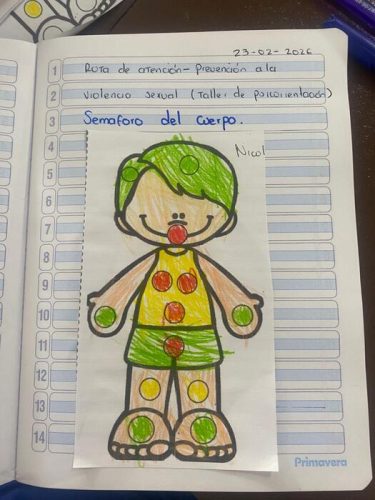 23-02-2026
1 Ruta de atención - Prevención a la
2 violencia sexual (Taller de psicorientación)
3 Semaforo del cuerpo.
4
Nicol
5
6
7
8
9
10
11
12
13
14
Primavera